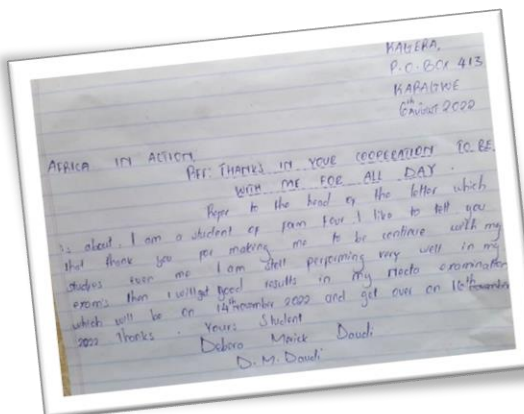 KAGERA,
P.O.BOX 413
KARAGWE
6th August 2022
AFRICA IN ACTION
REF: THANKS IN YOUR COOPERATION TO BE
WITH ME FOR ALL DAY.
Refer to the head of the letter which
is about. I am a student of form four. I like to tell you
that thank you for making me to be continue with my
studies ever me I am still performing very well in my
exam's then I will get good results in my Necta examination
which will be on 14th november 2022 and get over on
2022 Thanks. Yours Student
Debora Daudi
D.M. Daudi